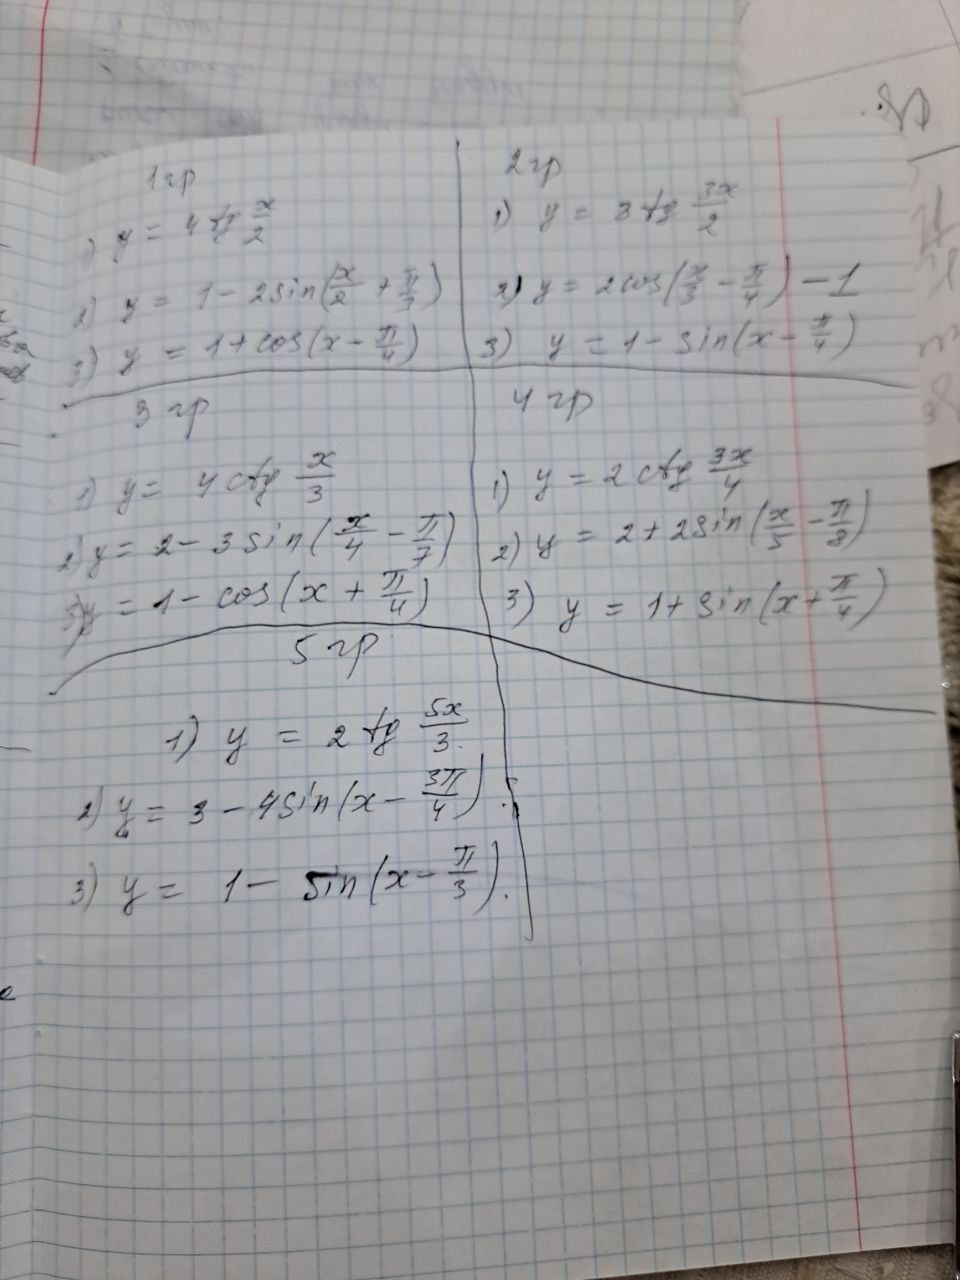 1 гр
1) y = 4 tg x/2
2) y = 1 - 2sin(x/2 + π/3)
3) y = 1 + cos(x - π/4)
2 гр
1) y = 3 tg 3x/2
2) y = 2cos(x/3 - π/4) - 1
3) y = 1 - sin(x - π/4)
3 гр
1) y = 4 ctg x/3
2) y = 2 - 3 sin(x/4 - π/7)
3) y = 1 - cos(x + π/4)
4 гр
1) y = 2 ctg 3x/4
2) y = 2 + 2sin(x/5 - π/8)
3) y = 1 + sin(x + π/4)
5 гр
1) y = 2 tg 5x/3
2) y = 3 - 4sin(x - 3π/4)
3) y = 1 - sin(x - π/3).